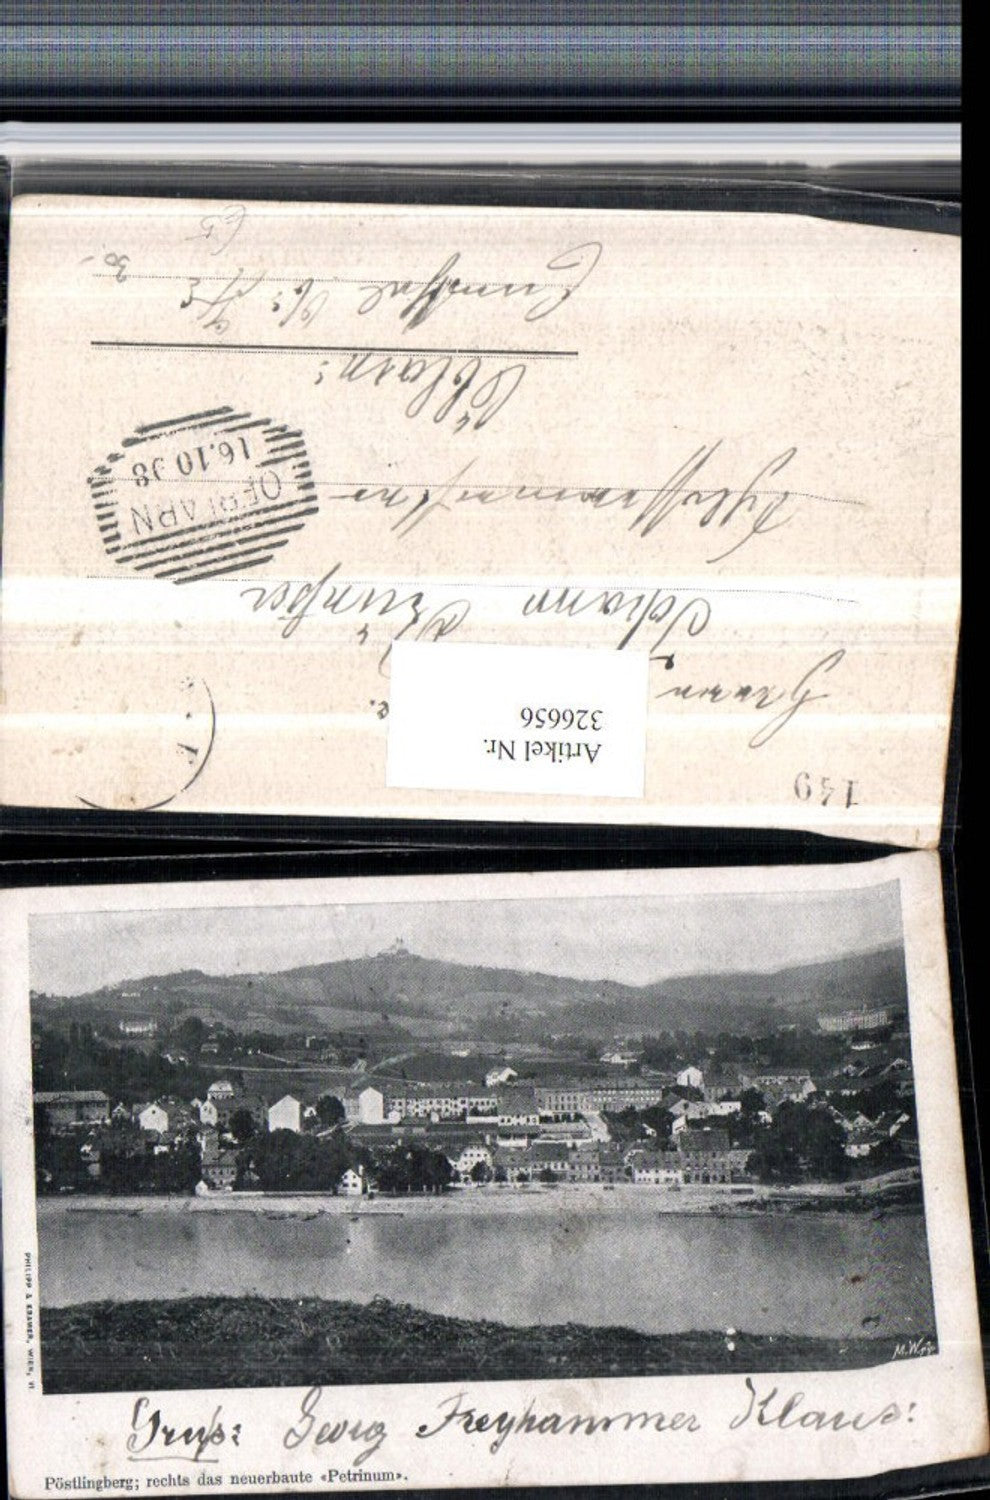 149
Artikel Nr.
326656
Herrn
Johann
Öblarn:
Ennsthal
OEBLARN
16.10.98
PHILIPP & KRAMER, WIEN, VI
Gruß: Georg Freyhammer Klaus:
Pöstlingberg; rechts das neuerbaute «Petrinum».